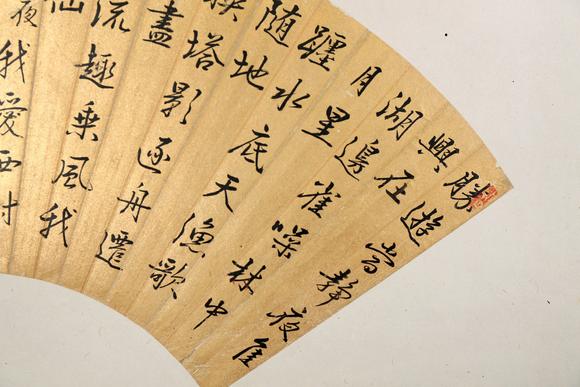 勝遊嘗靜夜佳
興在
湖邊雀噪林中
月星
躔水底天漁歌
隨地
塔影逐舟遷
盡
流趣乘風我
仙
夜我愛西村